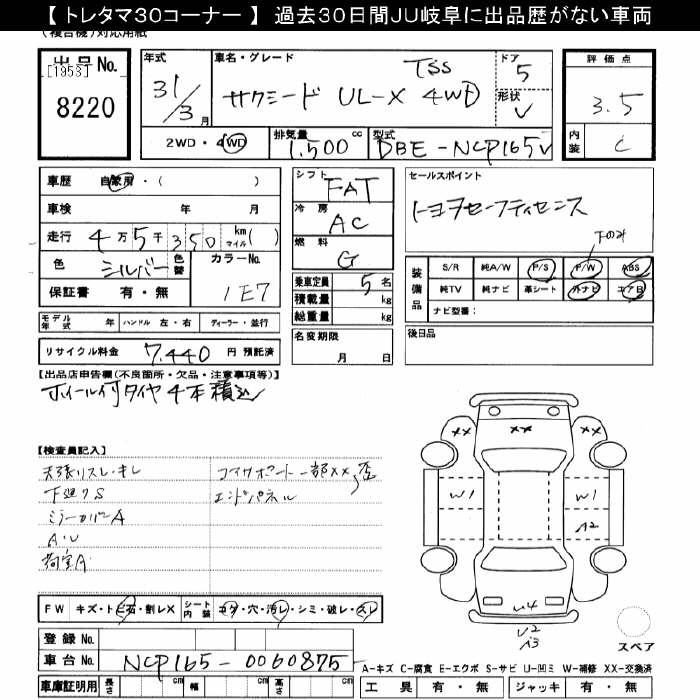 【 トレタマ30コーナー 】 過去30日間JU岐阜に出品歴がない車両
(複合機)対応用紙
出品No.
[1953]
8220
年式
31/3月
車名・グレード
TSS
サクシード UL-X 4WD
ドア
5
形状
V
評価点
3.5
内装
C
2WD・4WD
排気量
1,500 cc
型式
DBE-NCP165V
車歴 自家用・( )
車検 年 月
走行 4万5千350 km マイル( )
色 シルバー 色替
カラーNo.
1E7
保証書 有・無
シフト FAT
冷房 AC
燃料 G
乗車定員 5名
積載量 kg
総重量 kg
名変期限
月 日
セールスポイント
トヨタセーフティセンス
下のみ
装備品
S/R 純A/W P/S P/W ABS
純TV 純ナビ 革シート 外ナビ エアB
ナビ型番:
後日品
モデル年式 年 ハンドル 左・右 ディーラー・並行
リサイクル料金 7,440 円 預託済
【出品店申告欄(不良箇所・欠品・注意事項等)】
ホイール付タイヤ4本積込
【検査員記入】
天張リスレ・キレ
下廻りS
ミラーカバーA
A・U
荷室A
コアサポート一部XX 歪
エンドパネル
XX XX XX
W1 W1
A2
U4
U2
A3
スペア
FW キズ・ト飛石・割レX シート内装 コゲ・穴・汚レ・シミ・破レ・スレ
登録 No.
車台 No. NCP165-0060875
車庫証明用 長さ cm 幅 cm 高さ cm
A-キズ C-腐食 E-エクボ S-サビ U-凹ミ W-補修 XX-交換済
工具 有・無 ジャッキ 有・無